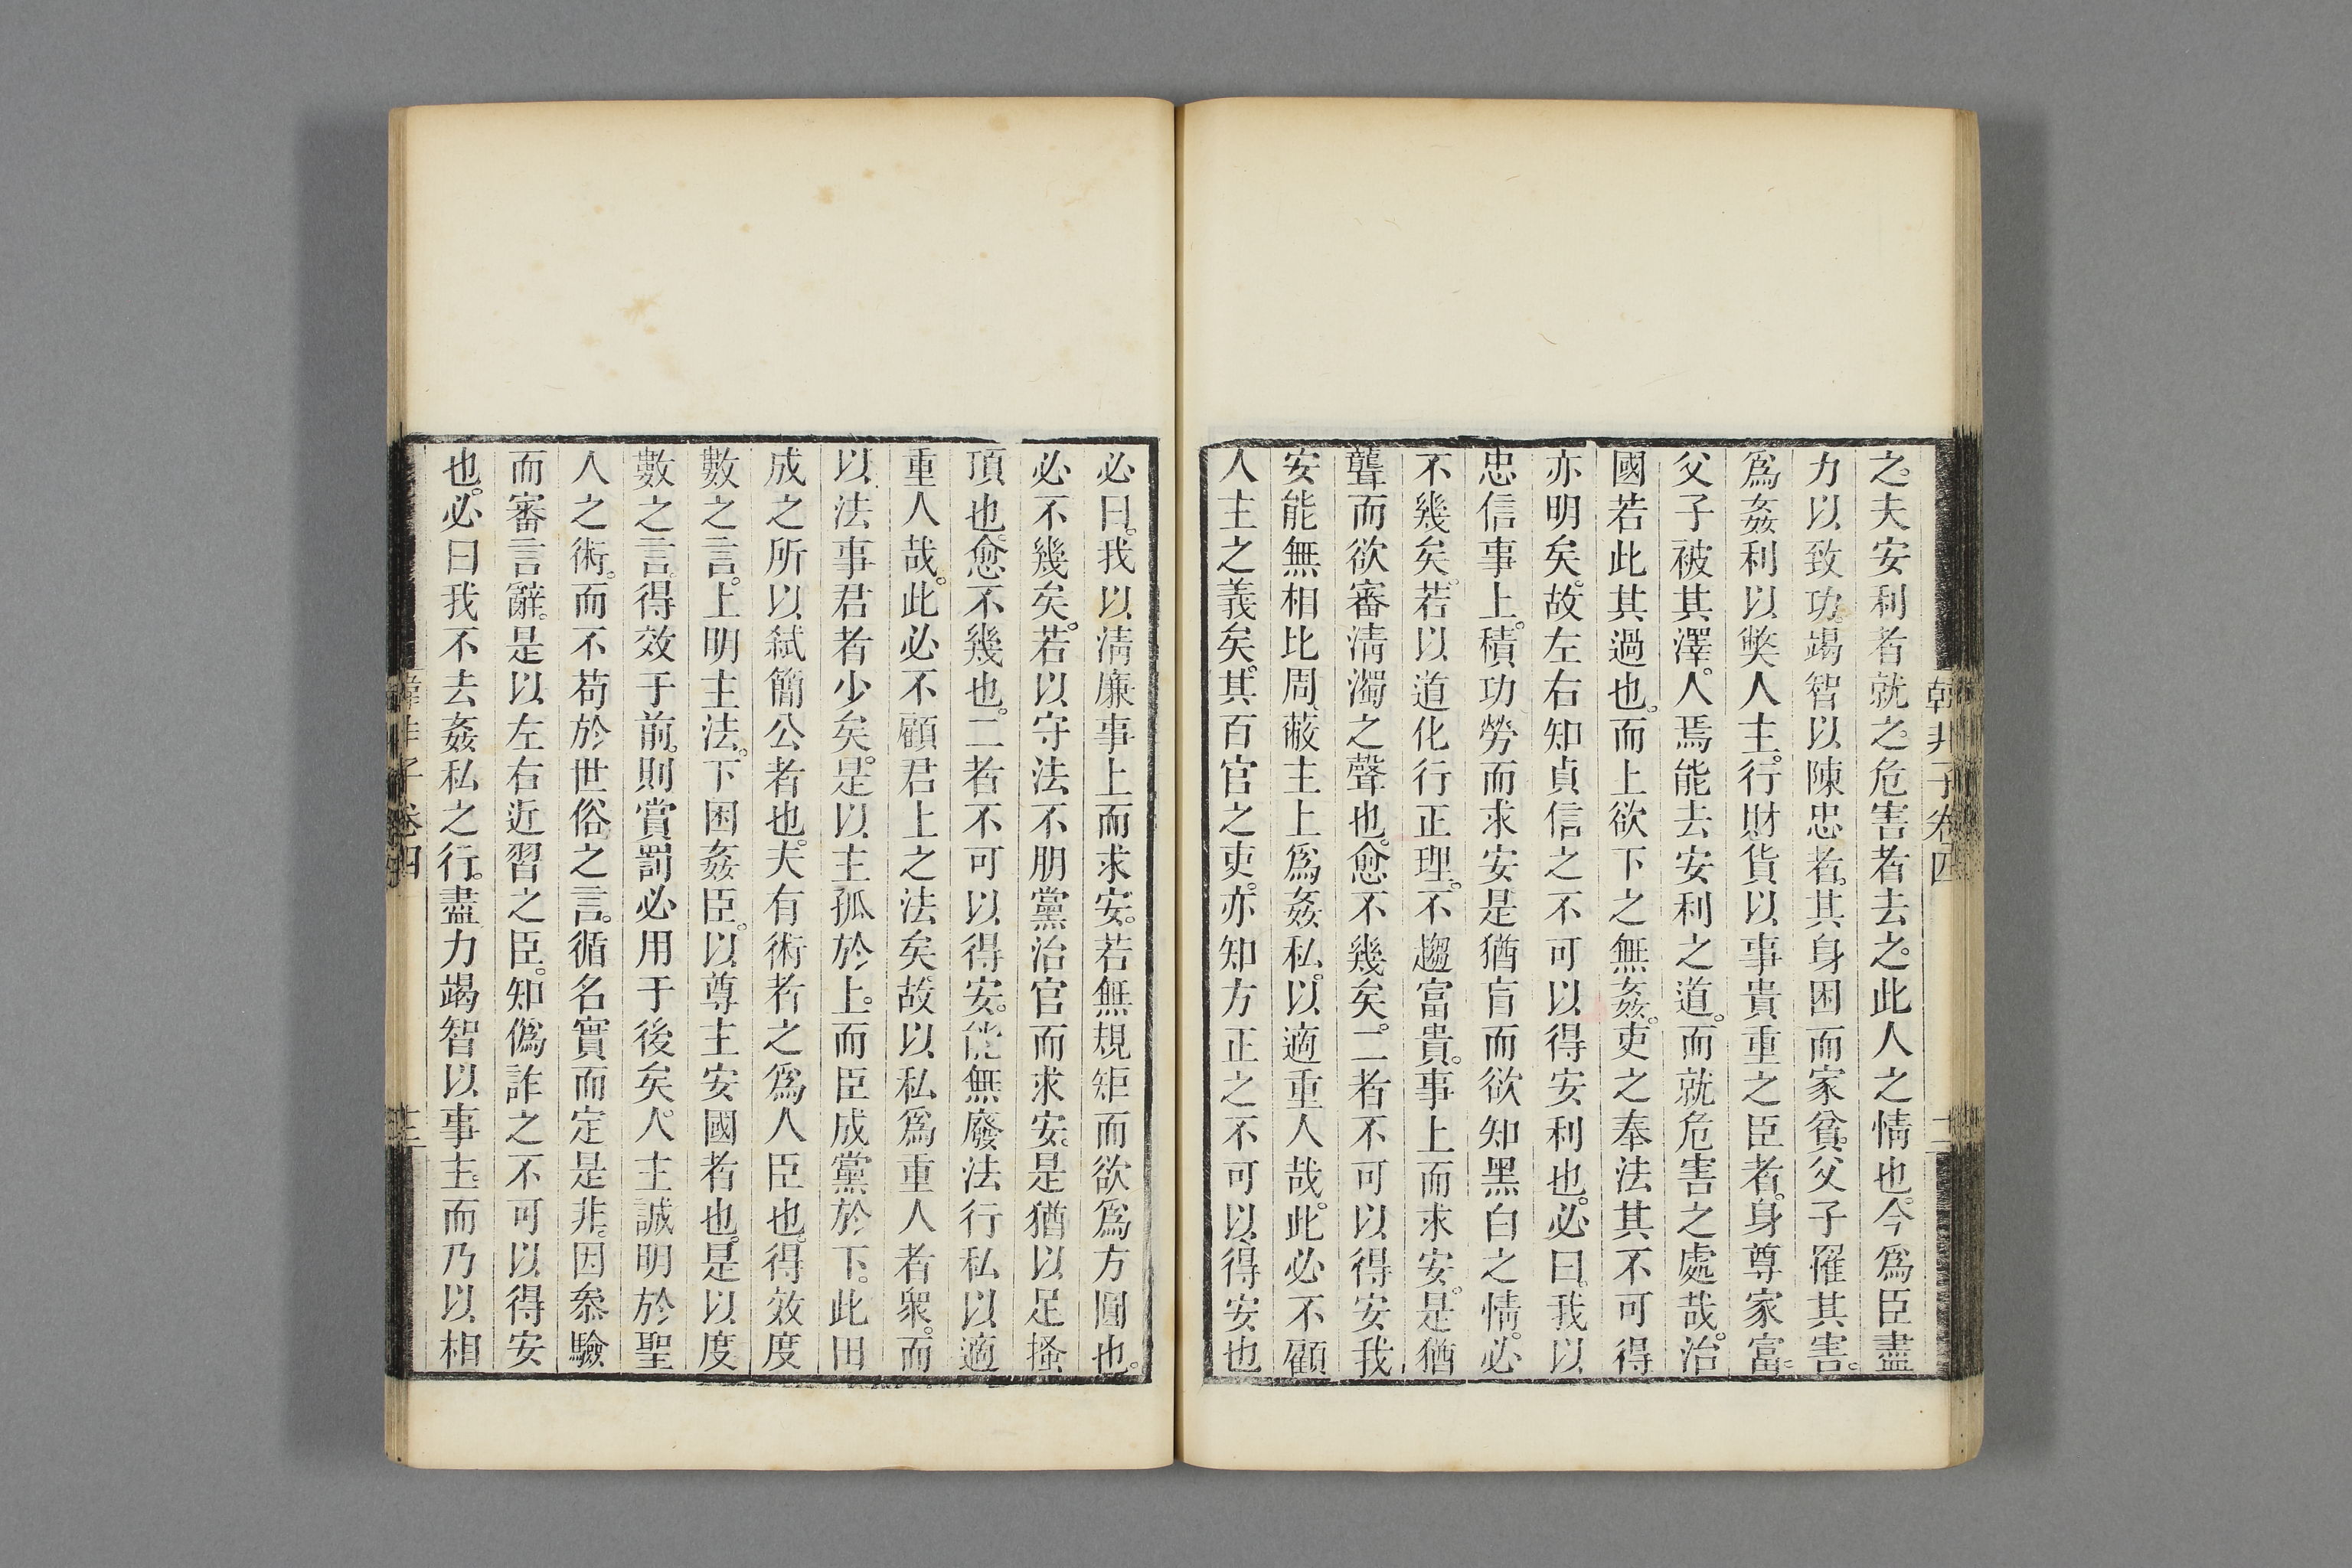 之。夫安利者就之。危害者去之。此人之情也。今爲臣盡
力以致功。竭智以陳忠者。其身困而家貧。父子罹其害。
爲姦利以獘人主。行財貨以事貴重之臣者。身尊家富。
父子被其澤。人焉能去安利之道。而就危害之處哉。治
國若此其過也。而上欲下之無姦。吏之奉法其不可得
亦明矣。故左右知貞信之不可以得安利也。必曰。我以
忠信事上。積功勞而求安是猶盲而欲知黑白之情。必
不幾矣。若以道化行正理。不趨富貴。事上而求安。是猶
聾而欲審淸濁之聲也。愈不幾矣。二者不可以得安我
安能無相比周、蔽主上爲姦私。以適重人哉。此必不顧
人主之義矣。其百官之吏。亦知方正之不可以得安也
必曰。我以淸廉事上而求安。若無規矩而欲爲方圓也。
必不幾矣。若以守法不朋黨治官而求安。是猶以足搔
頂也。愈不幾也。二者不可以得安。能無廢法行私以適
重人哉。此必不顧君上之法矣。故以私爲重人者衆。而
以法事君者少矣。是以主孤於上。而臣成黨於下。此田
成之所以弑簡公者也。夫有術者之爲人臣也。得效度
數之言。上明主法。下困姦臣。以尊主安國者也。是以度
數之言。得效于前。則賞罰必用于後矣。人主誠明於聖
人之術。而不苟於世俗之言。循名實而定是非。因參驗
而審言辭。是以左右近習之臣。知僞詐之不可以得安
也。必曰我不去姦私之行。盡力竭智以事主。而乃以相
韓非子卷四